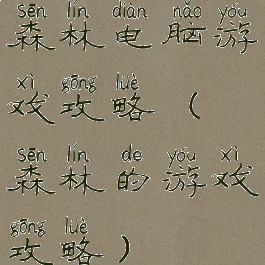 sēn lín diàn nǎo yóu
森林电脑游
xì gōng lüè
戏攻略（
sēn lín de yóu xì
森林的游戏
gōng lüè
攻略）